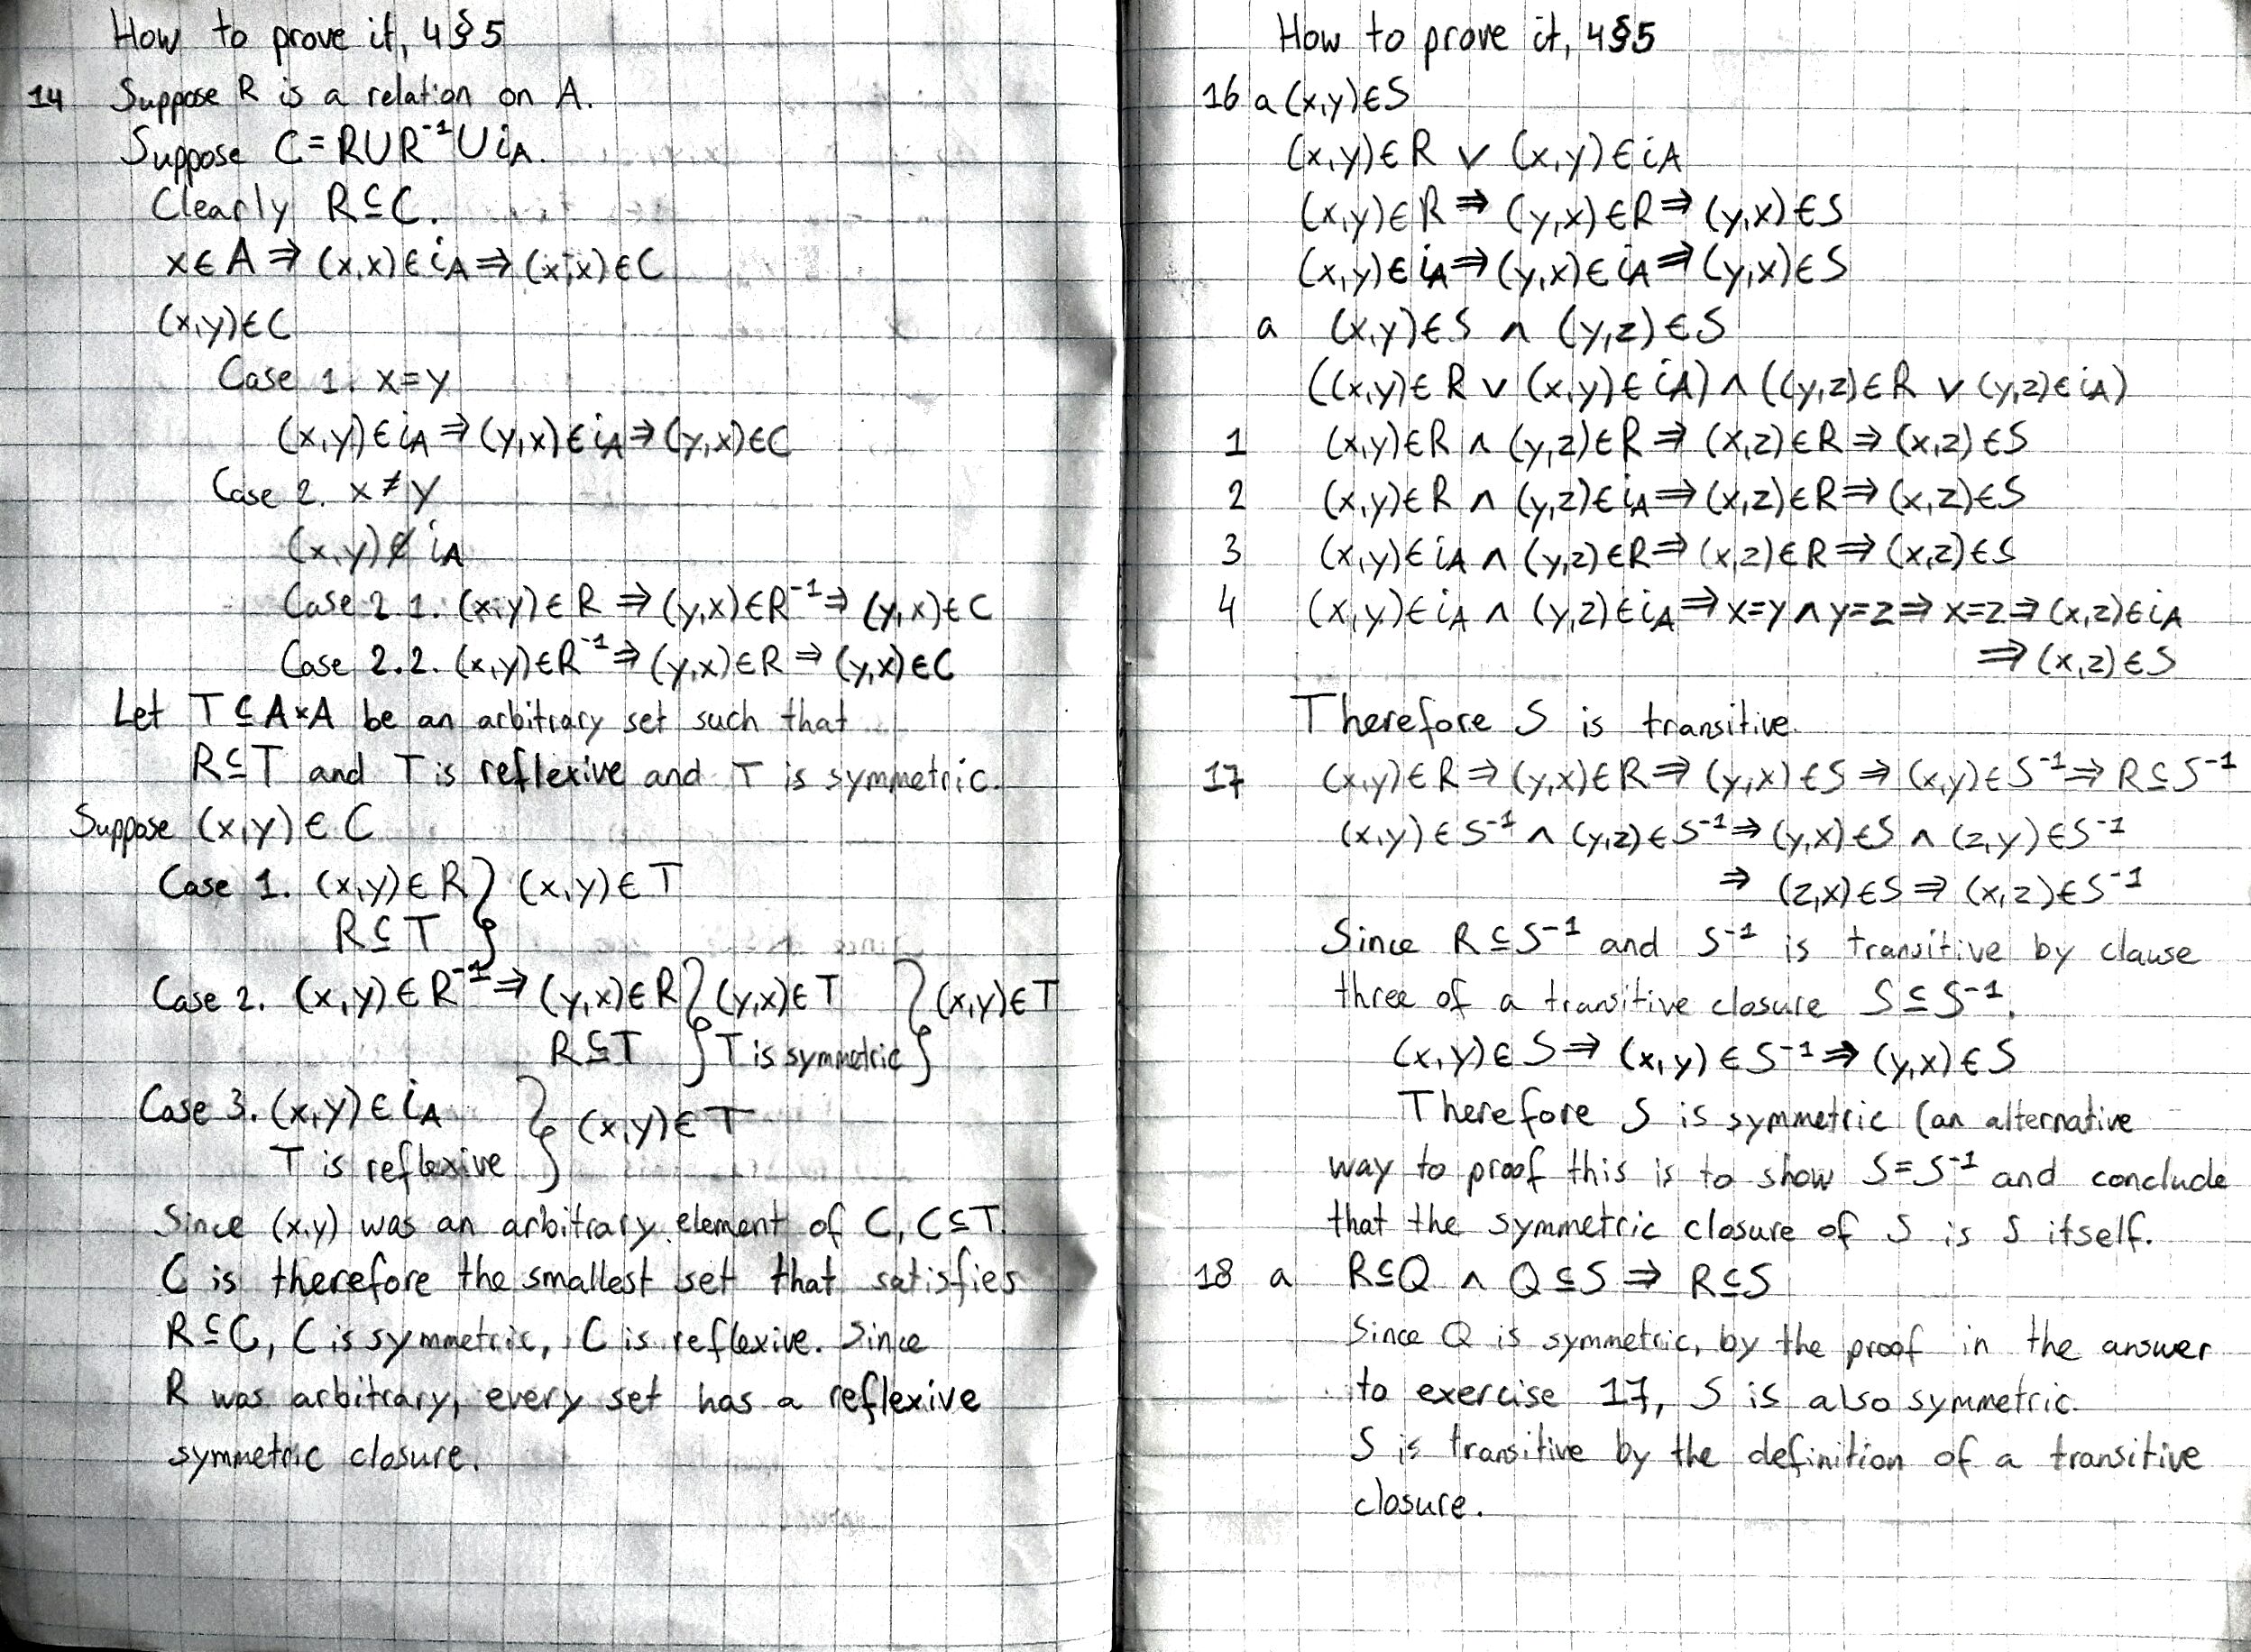 How to prove it, 4§5
14 Suppose R is a relation on A.
Suppose C=R∪R⁻¹∪i_A.
Clearly R⊆C.
x∈A⇒(x,x)∈i_A⇒(x,x)∈C
(x,y)∈C
Case 1. x=y
(x,y)∈i_A⇒(y,x)∈i_A⇒(y,x)∈C
Case 2. x≠y
(x,y)∉i_A
Case 2.1. (x,y)∈R⇒(y,x)∈R⁻¹⇒(y,x)∈C
Case 2.2. (x,y)∈R⁻¹⇒(y,x)∈R⇒(y,x)∈C
Let T⊆A×A be an arbitrary set such that
R⊆T and T is reflexive and T is symmetric.
Suppose (x,y)∈C
Case 1. (x,y)∈R } (x,y)∈T
R⊆T
Case 2. (x,y)∈R⁻¹⇒(y,x)∈R } (y,x)∈T } (x,y)∈T
R⊆T } T is symmetric }
Case 3. (x,y)∈i_A } (x,y)∈T
T is reflexive
Since (x,y) was an arbitrary element of C, C⊆T.
C is therefore the smallest set that satisfies
R⊆C, C is symmetric, C is reflexive. Since
R was arbitrary, every set has a reflexive
symmetric closure.
How to prove it, 4§5
16 a (x,y)∈S
(x,y)∈R ∨ (x,y)∈i_A
(x,y)∈R⇒(y,x)∈R⇒(y,x)∈S
(x,y)∈i_A⇒(y,x)∈i_A⇒(y,x)∈S
a (x,y)∈S ∧ (y,z)∈S
((x,y)∈R ∨ (x,y)∈i_A) ∧ ((y,z)∈R ∨ (y,z)∈i_A)
1 (x,y)∈R ∧ (y,z)∈R⇒(x,z)∈R⇒(x,z)∈S
2 (x,y)∈R ∧ (y,z)∈i_A⇒(x,z)∈R⇒(x,z)∈S
3 (x,y)∈i_A ∧ (y,z)∈R⇒(x,z)∈R⇒(x,z)∈S
4 (x,y)∈i_A ∧ (y,z)∈i_A⇒x=y∧y=z⇒x=z⇒(x,z)∈i_A
⇒(x,z)∈S
Therefore S is transitive.
17 (x,y)∈R⇒(y,x)∈R⇒(y,x)∈S⇒(x,y)∈S⁻¹⇒R⊆S⁻¹
(x,y)∈S⁻¹ ∧ (y,z)∈S⁻¹⇒(y,x)∈S ∧ (z,y)∈S⁻¹
⇒ (z,x)∈S⇒(x,z)∈S⁻¹
Since R⊆S⁻¹ and S⁻¹ is transitive by clause
three of a transitive closure S⊆S⁻¹.
(x,y)∈S⇒(x,y)∈S⁻¹⇒(y,x)∈S
Therefore S is symmetric (an alternative
way to proof this is to show S=S⁻¹ and conclude
that the symmetric closure of S is S itself.
18 a R⊆Q ∧ Q⊆S⇒R⊆S
Since Q is symmetric, by the proof in the answer
to exercise 17, S is also symmetric.
S is transitive by the definition of a transitive
closure.